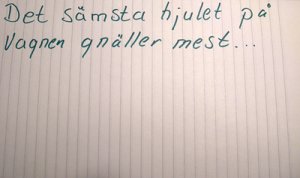 Det sämsta hjulet på
vagnen gnäller mest...